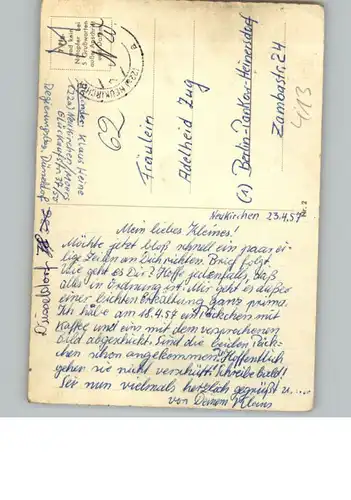 Absender: Klaus Heine
(22a) Neukirchen/Moers
Regierungsbez. Düsseldorf
(22a) NEUKIRCHEN
Fräulein
Adelheid Zug
(1) Berlin-Pankow-Heinersdorf
Zambastr. 24
413
Neukirchen 23.4.57
Mein liebes Kleines!
Möchte jetzt bloß schnell ein paar ei-
lige Zeilen an Dich richten. Brief folgt.
Wie geht es Dir? Hoffe jedenfalls, daß
alles in Ordnung ist. Mir geht es außer
einer dichten Erkältung ganz prima.
Ich habe am 18.4.57 ein Päckchen mit
Kaffee und eins mit dem versprochenen
Bild abgeschickt. Sind die beiden Päck-
chen schon angekommen? Hoffentlich
gehen sie nicht verschütt. Schreibe bald!
Sei nun vielmals herzlich gegrüßt u. ....
von Deinem Kleins